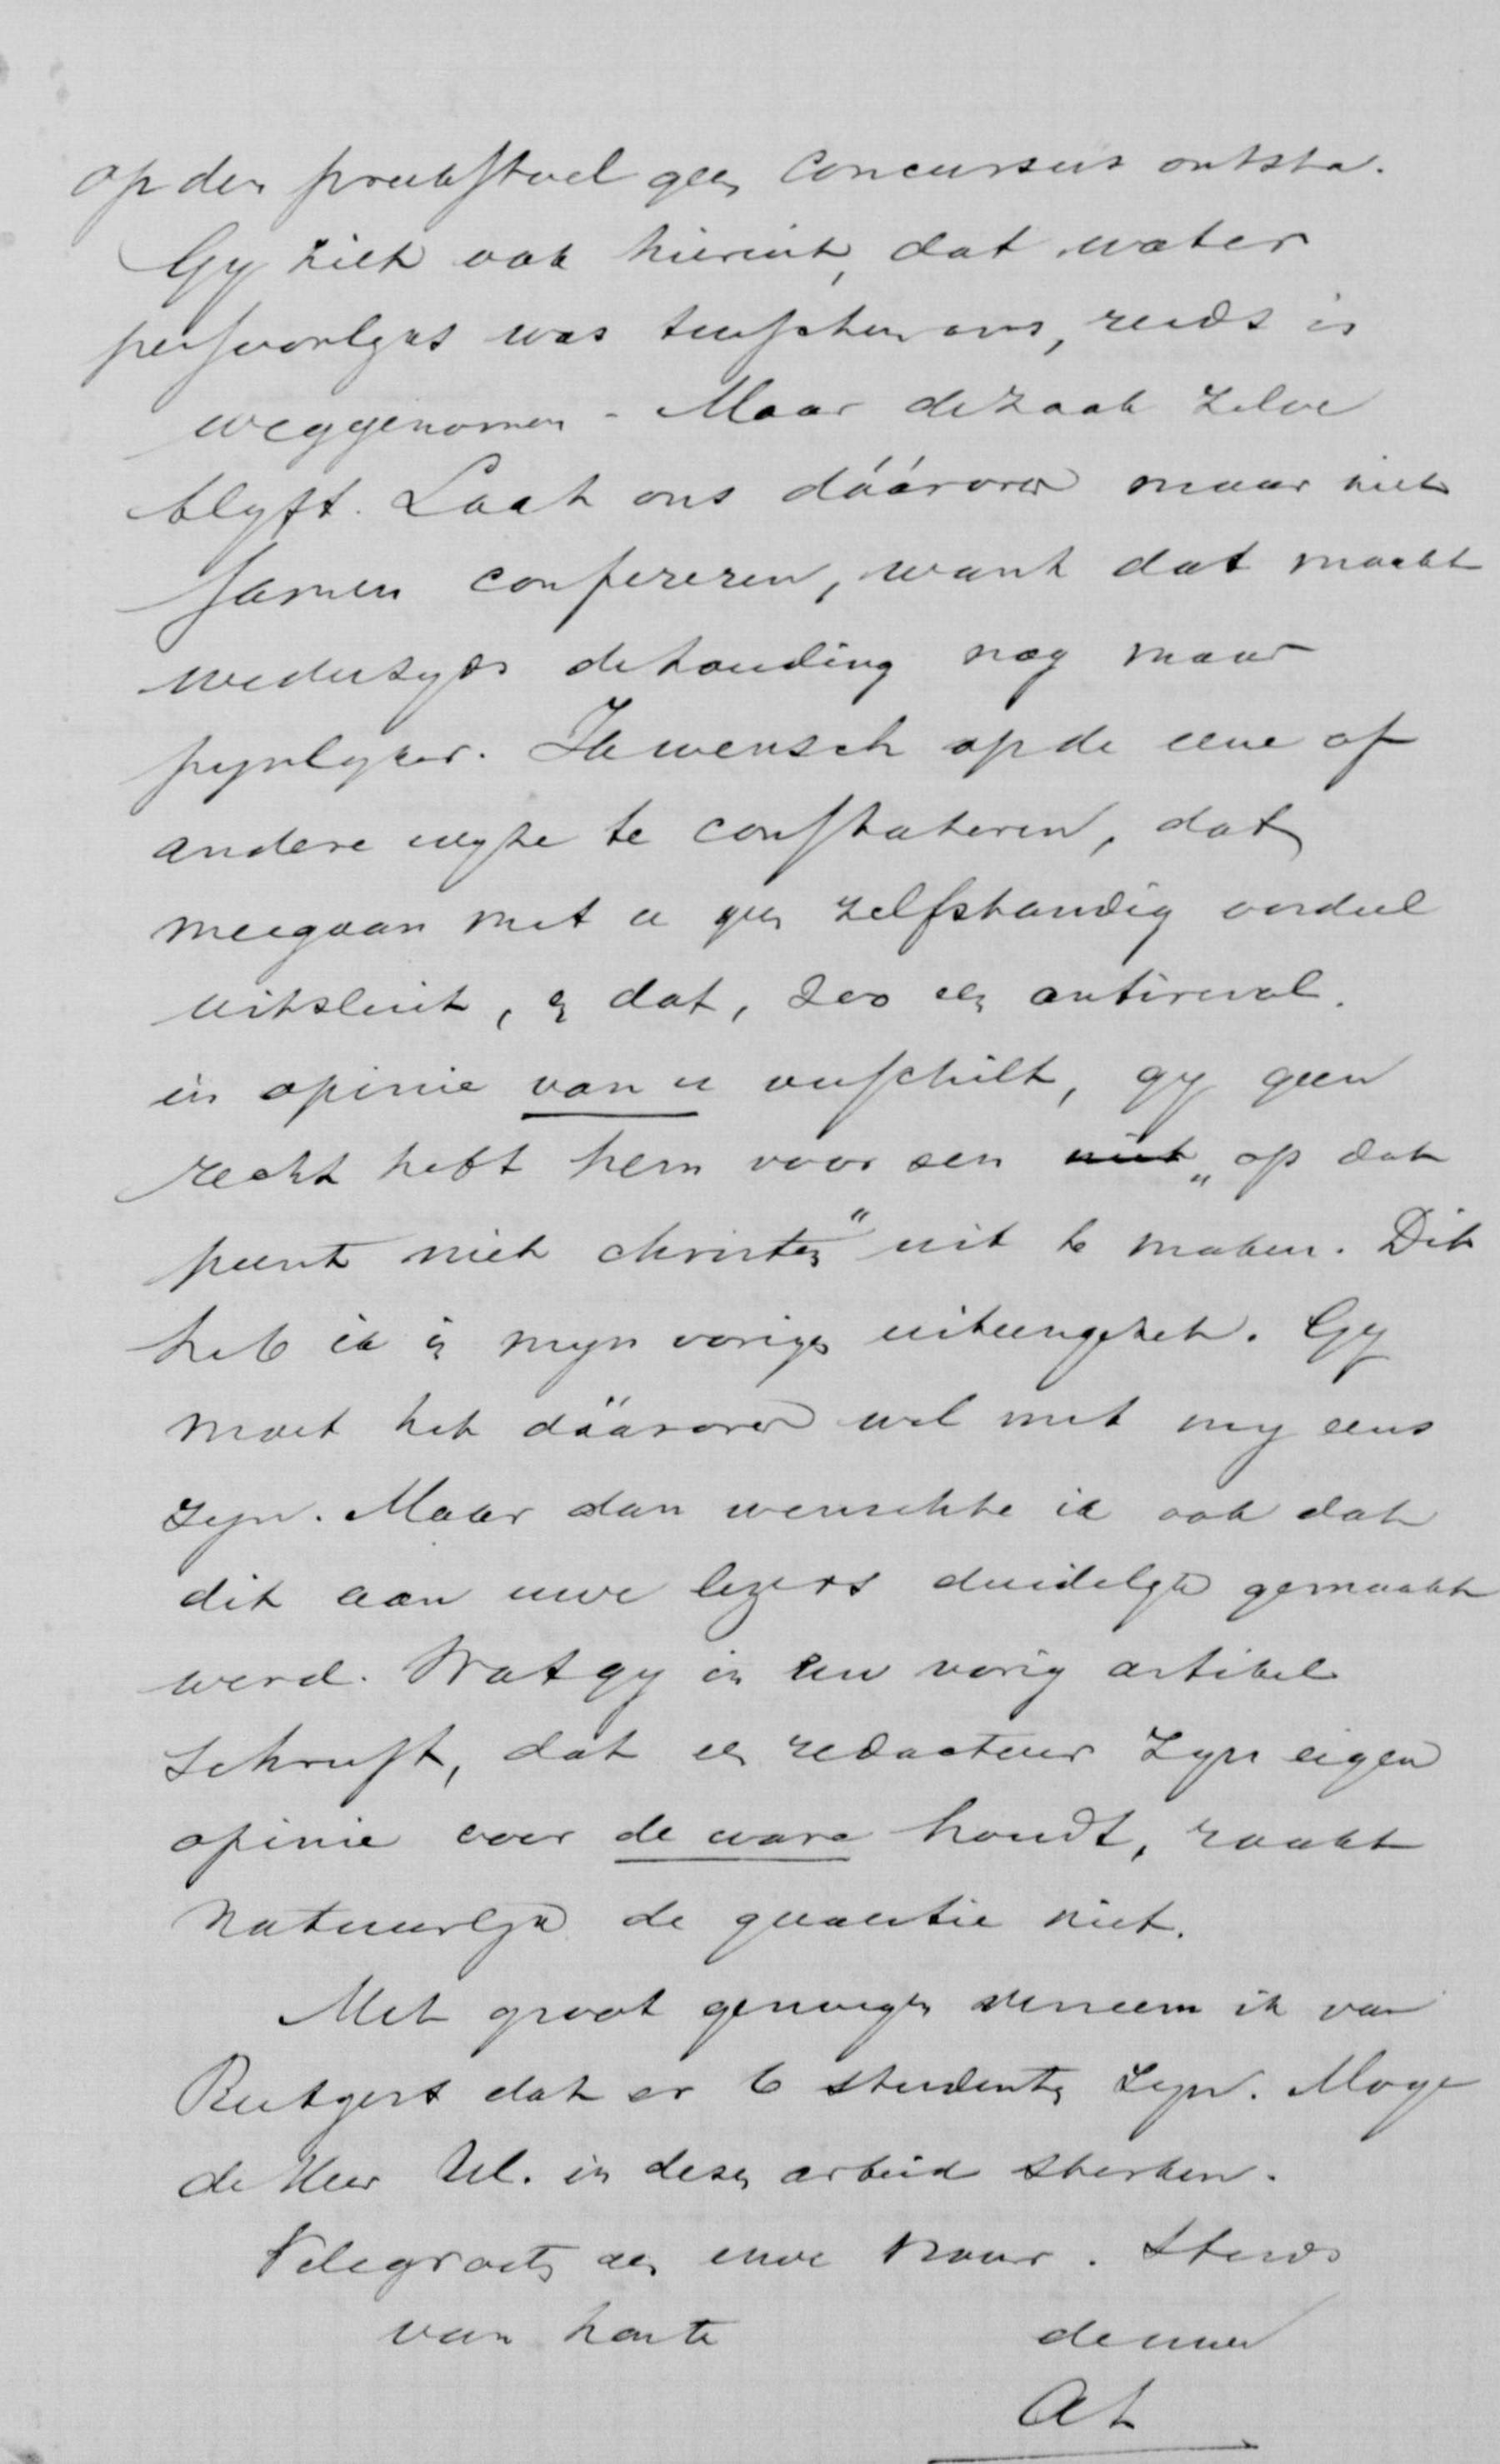 op den preekstoel geen concursus ontsta.
Gy ziet ook hieruit, dat water
persoonlyks was tusschen ons, reeds is
weggenomen - Maar de zaak zelve
blyft. Laat ons dáárover maar niet
samen confereren, want dat maakt
wederzyds de houding nog maar
pynlyker. Ik wensch op de eene of
andere wyze te constateren, dat
meegaan met u geen zelfstandig oordeel
uitsluit, en dat, zoo een antirevol.
in opinie van u verschilt, gy geen
recht hebt hem voor een niet „op dat
punt niet christen" uit te maken. Dit
heb ik in myn vorigen uiteengezet. Gy
moet het dáárover wel met my eens
zyn. Maar dan wenschte ik ook dat
dit aan uwe lezers duidelyk gemaakt
werd. Wat gy in uw vorig artikel
schreeft, dat een redacteur zyn eigen
opinie voor de ware houdt, raakt
natuurlyk de quaestie niet.
Met groot genoegen verneem ik van
Rutgers dat er 6 studenten zyn. Moge
de Heer Ul. in dezen arbeid sterken.
Vele groeten aen uwe vrouw. Steeds
van harte de uwe
AL